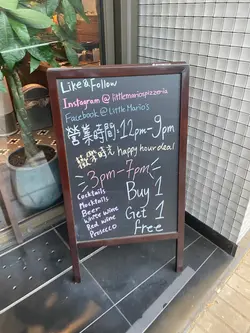 Like & Follow
Instagram @ littlemariospizzeria
Facebook @ Little Mario's
營業時間:12pm-9pm
歡樂時光 happy hour deal
3pm-7pm
Cocktails
Mocktails
Beer
White wine
Red wine
Prosecco
Buy 1
Get 1
free